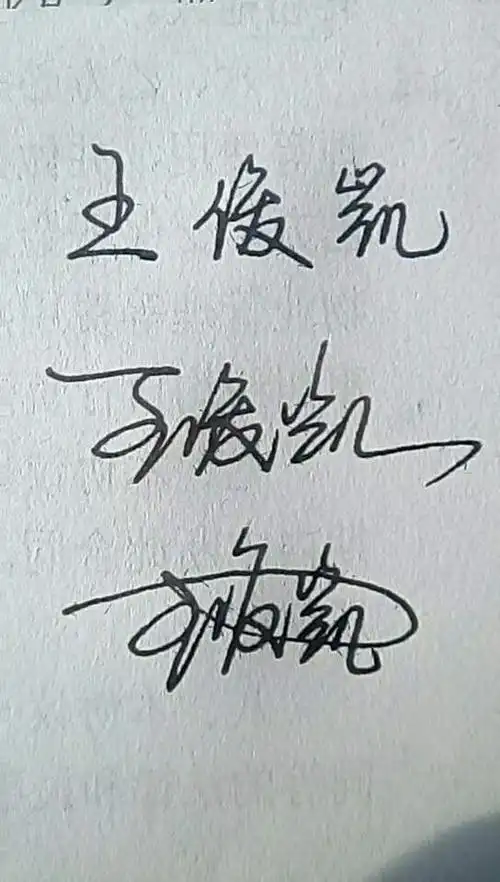 王俊凯
王俊凯
王俊凯